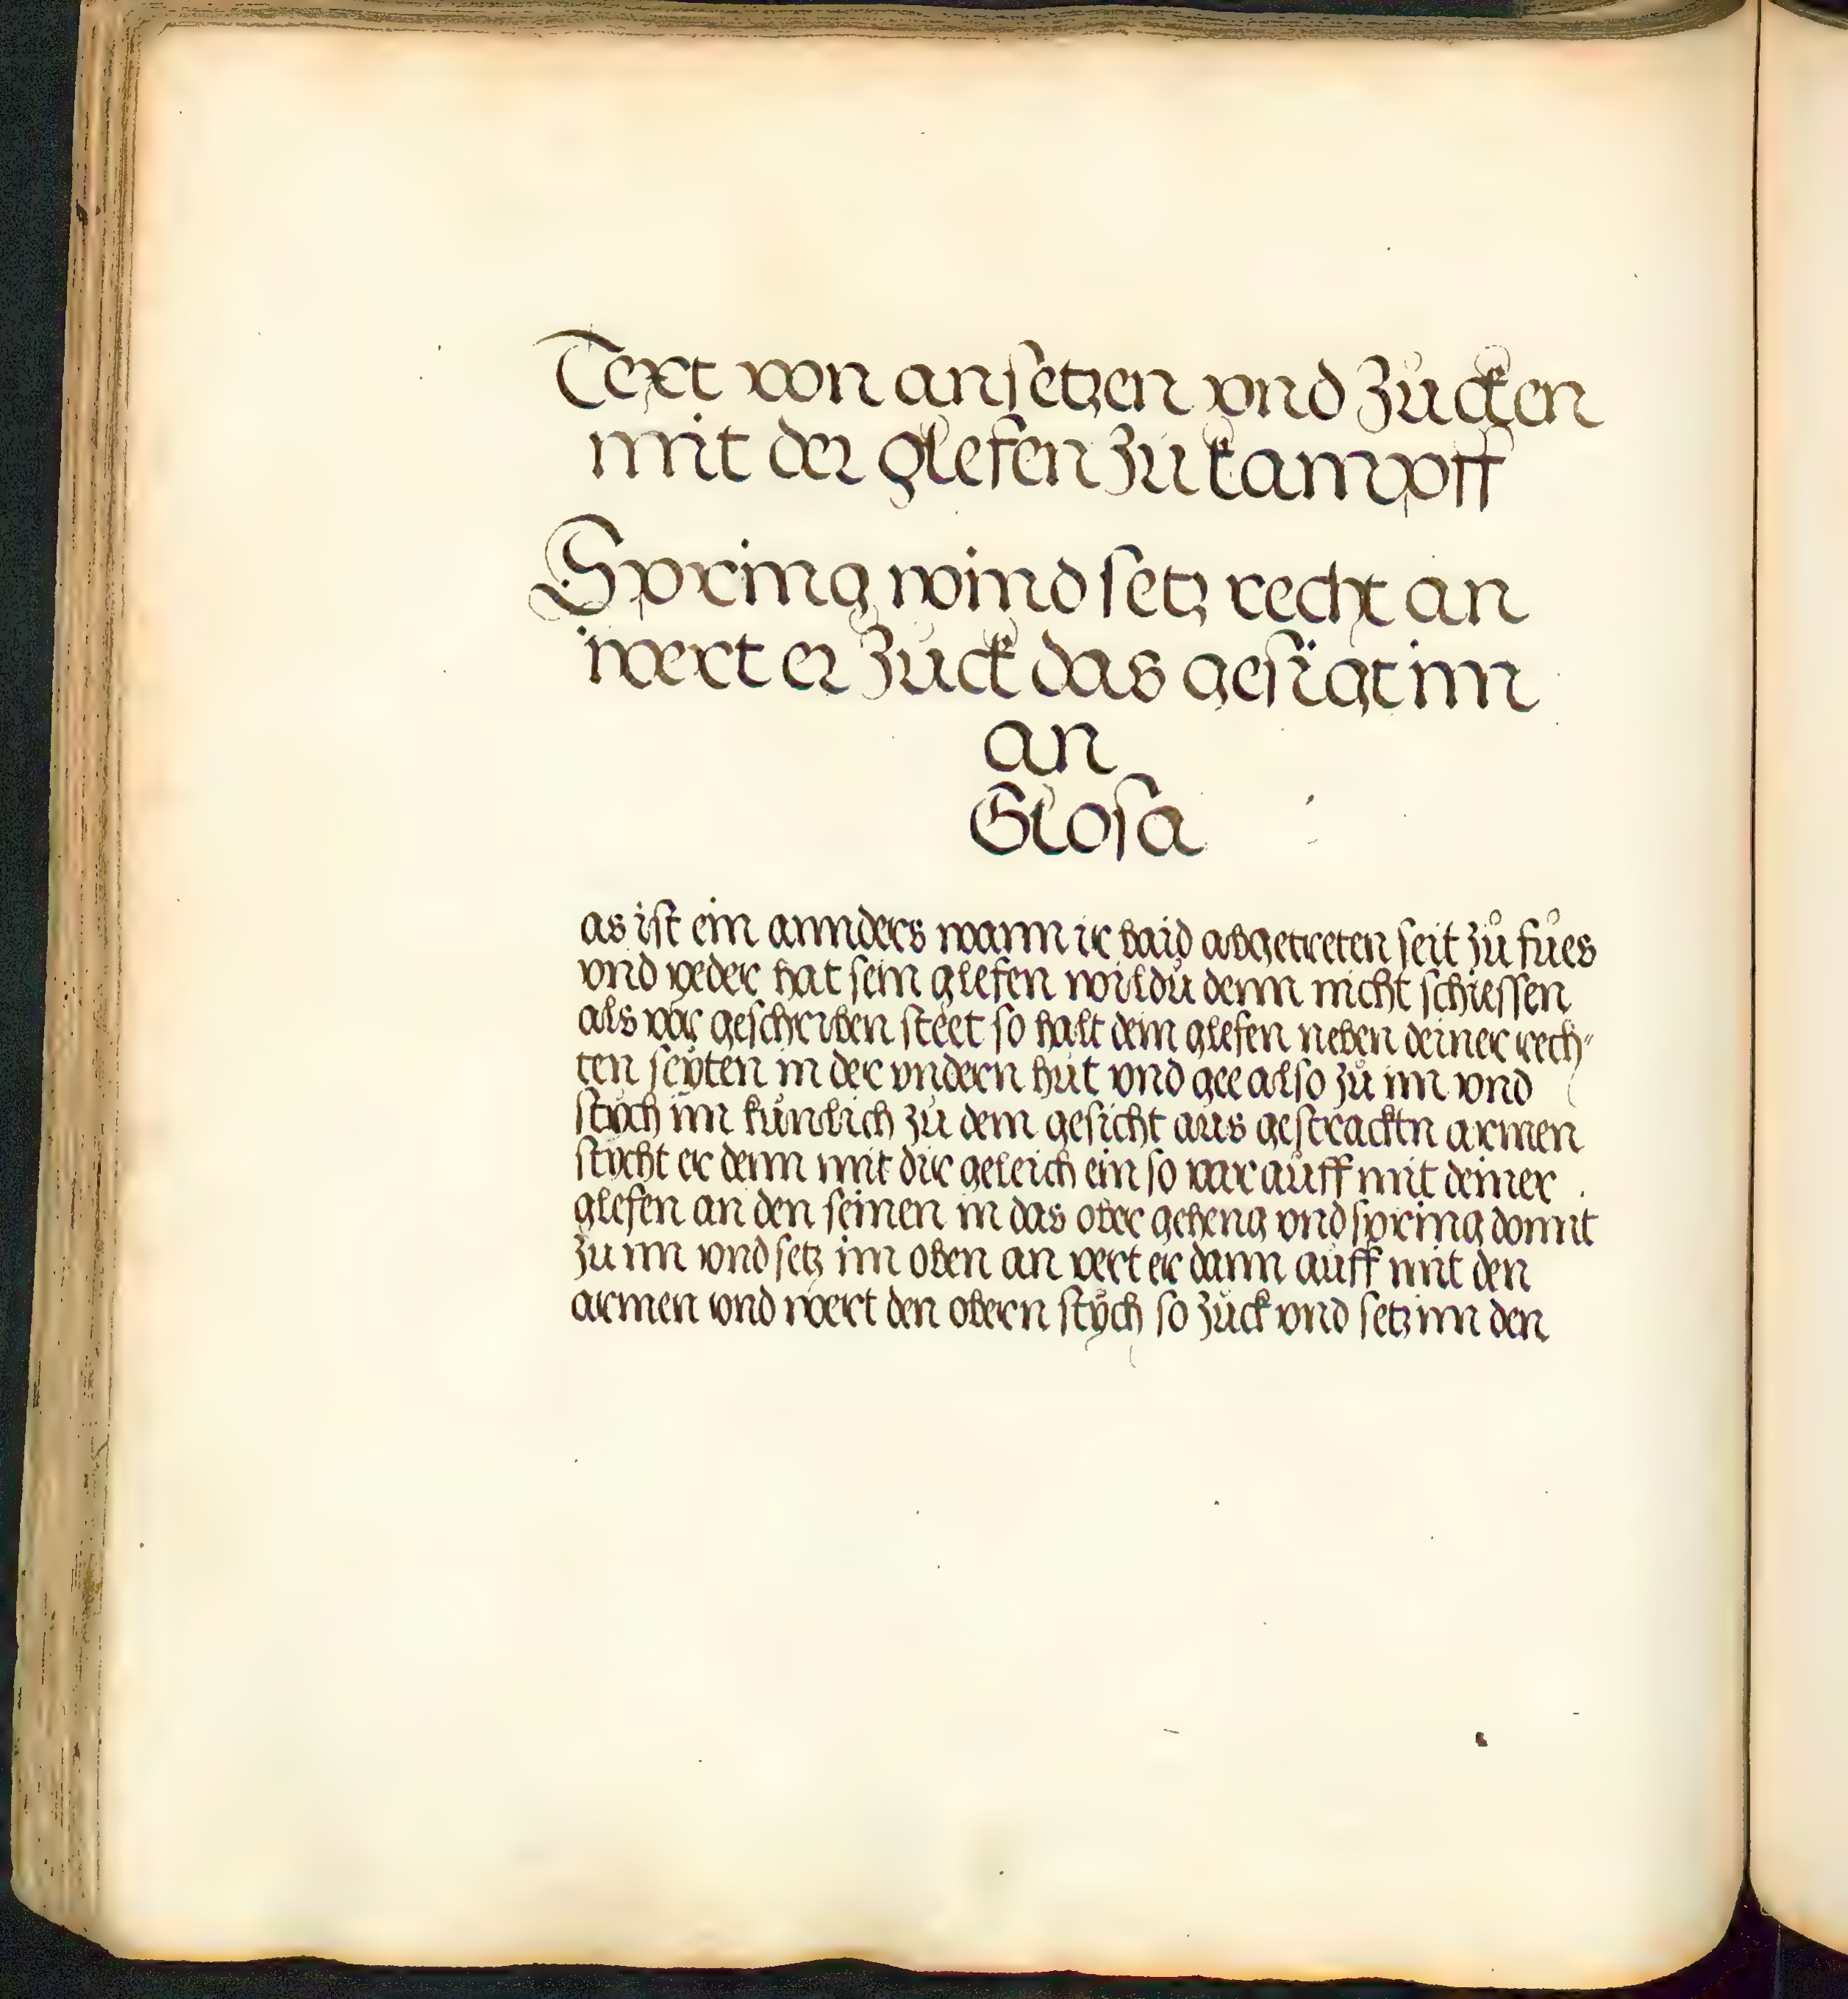 Text von ansetzen vnd Zucken
mit der glefen Zu kampff
Spring wind setz recht an
wert er Zuck das gesigt im
an
Glosa
as ist ein annders wann ir baid abgetreten seit zů fůes
vnd yeder hat sein glefen wildu denn nicht schiessen
als vor geschriben steet so halt dein glefen neben deiner rech"
ten seyten in der vndern hut vnd gee also zu im vnd
stych im kunlich zu dem gesicht aus gestracktn armen
stycht er denn mit dir geleich ein so var auff mit deiner
glefen an den seinen in das ober geheng vnd spring domit
zu im vnd setz im oben an vert er dann auff mit den
armen vnd wert den obern stÿch so zuck vnd setz im den